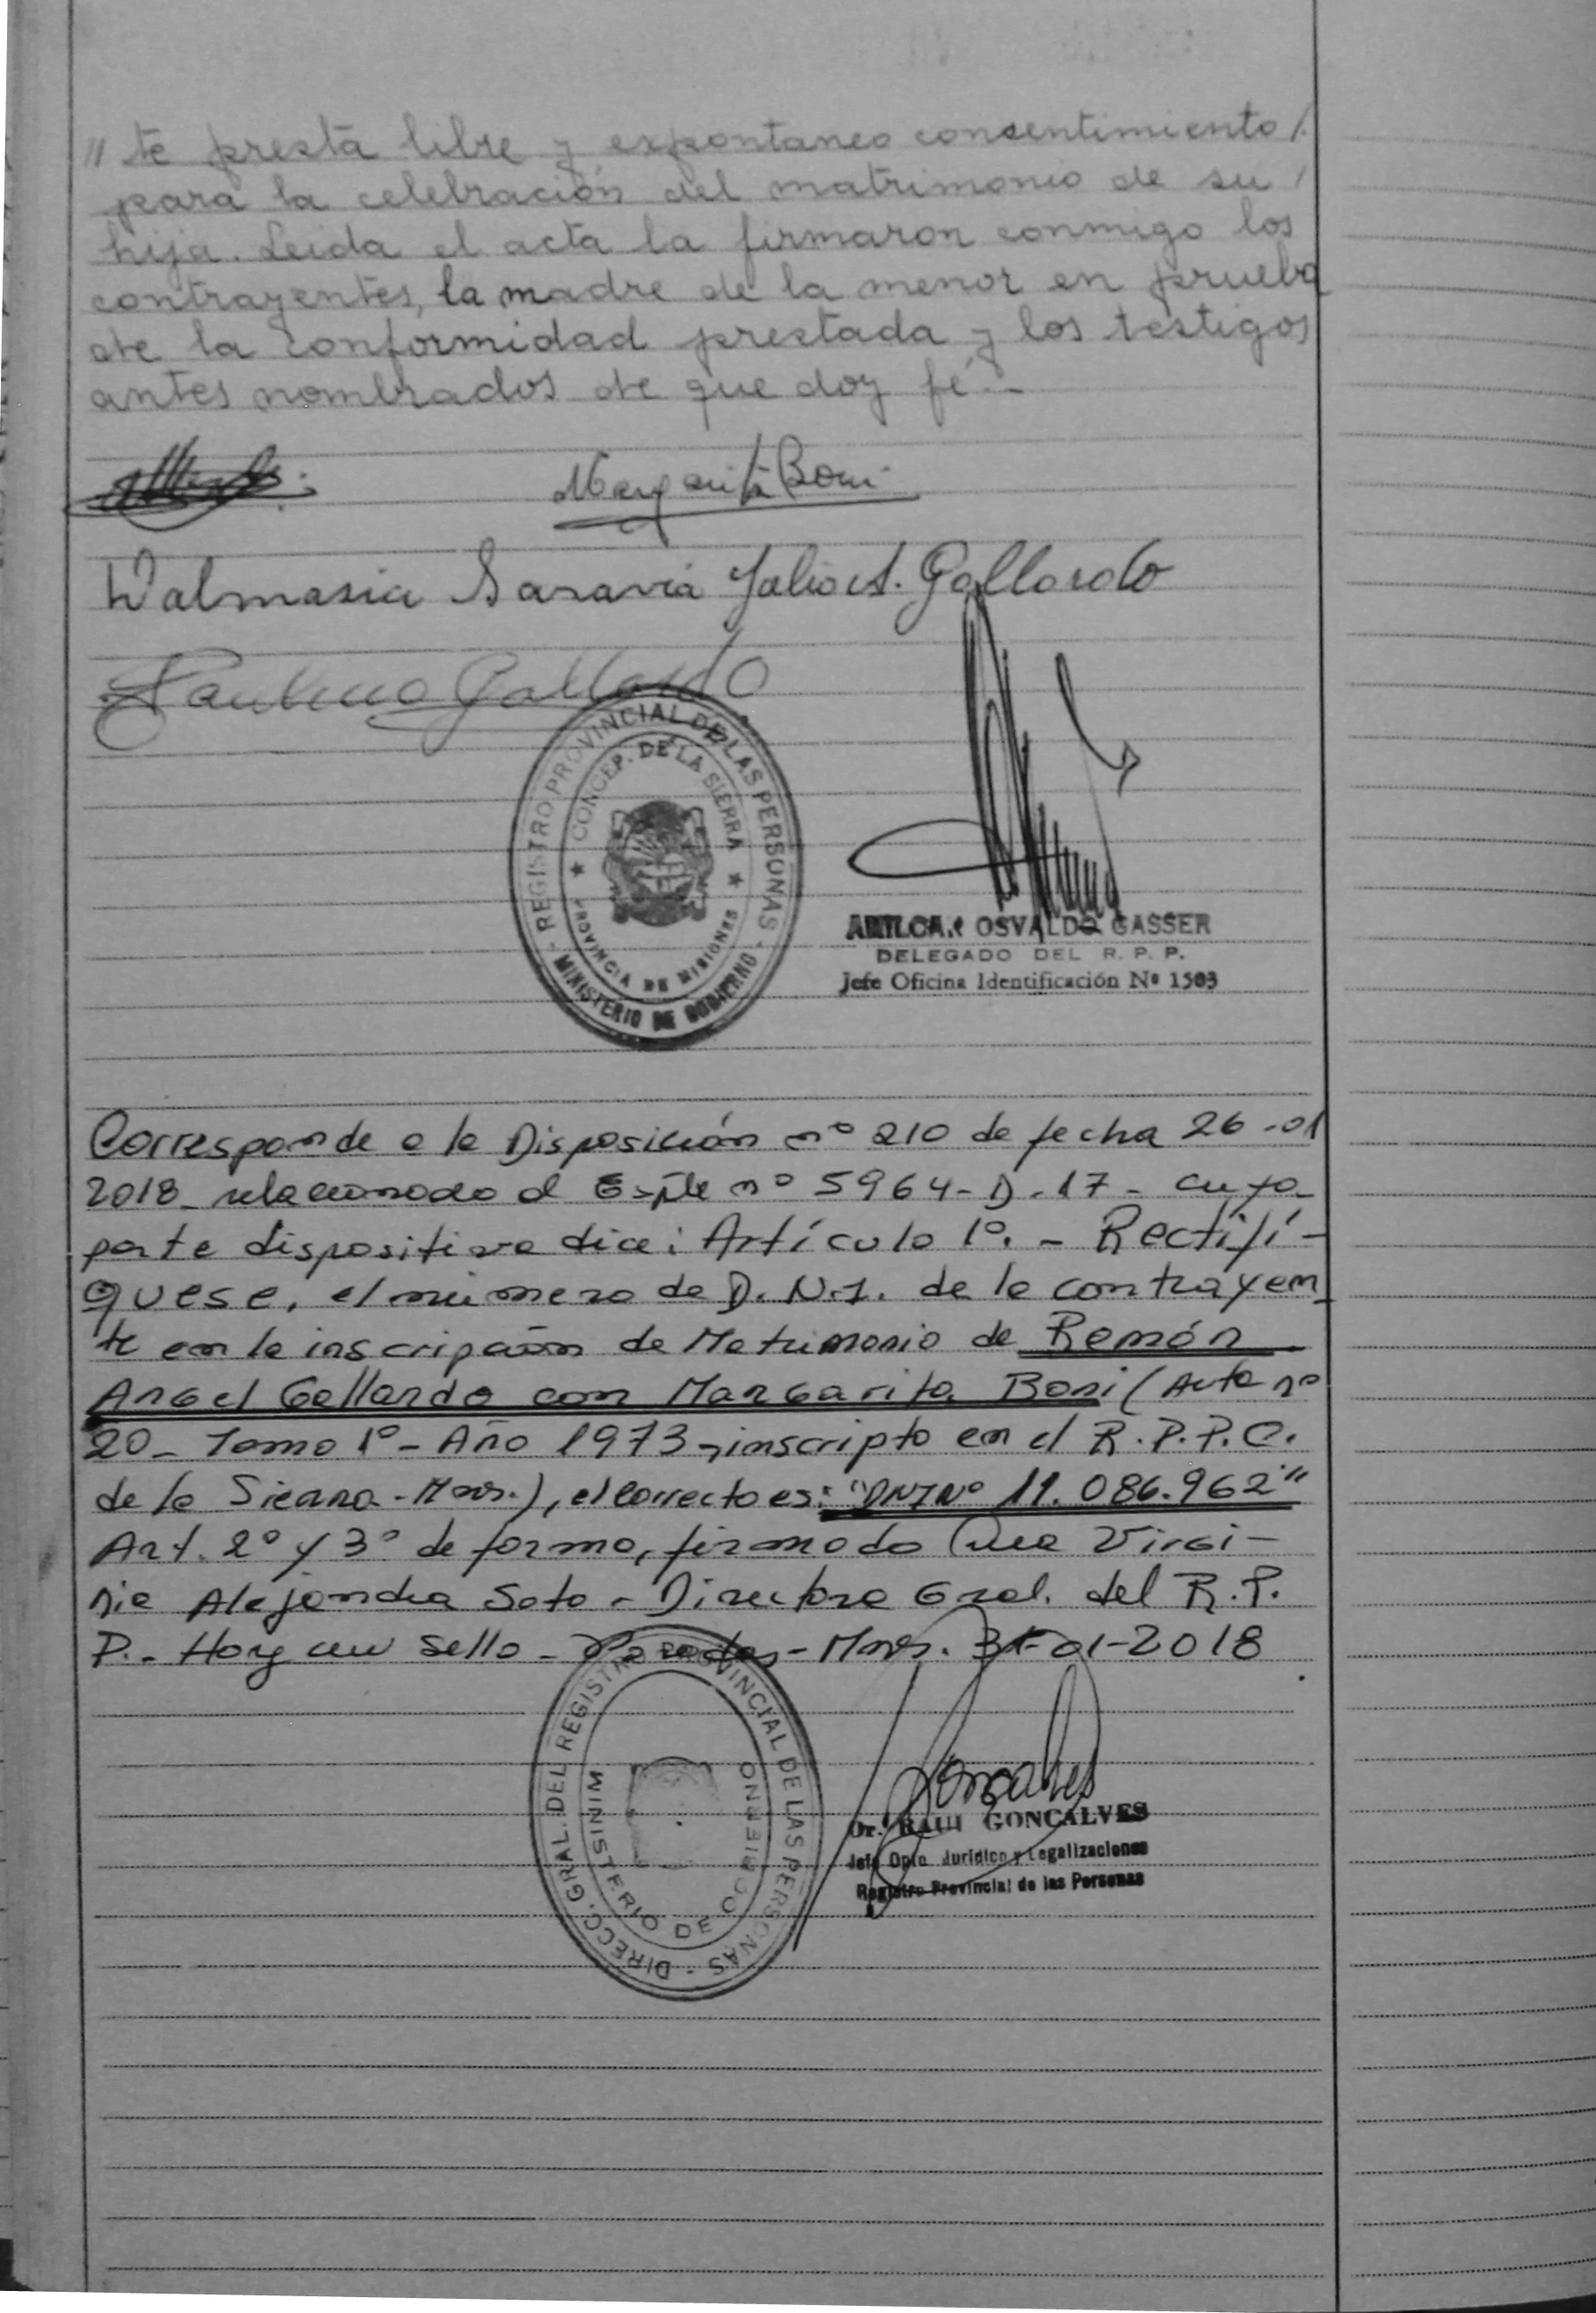 // te presta libre y expontaneo consentimiento /.
para la celebración del matrimonio de su /
hija. Leida el acta la firmaron conmigo los
contrayentes, la madre de la menor en prueba
de la conformidad prestada y los testigos
antes nombrados de que doy fé.-
Margarita Boni
Walmasia Saravia Julio A. Gallardo
Paulino Gallardo
- REGISTRO PROVINCIAL DE LAS PERSONAS -
MINISTERIO DE GOBIERNO
★ CONCEP. DE LA SIERRA ★
PROVINCIA DE MISIONES
OSVALDO GASSER
DELEGADO DEL R. P. P.
Jefe Oficina Identificación Nº 1503
Corresponde a la Disposición nº 210 de fecha 26-01
2018_ relacionado al Expte nº 5964-D-17- cuya
parte dispositiva dice: Artículo 1º.- Rectifí-
quese, el número de D.N.I. de la contrayen_
te en la inscripción de Matrimonio de Ramón
Angel Gallardo con Margarita Boni (Acta nº
20_ Tomo 1º- Año 1973, inscripto en el R.P.P.C.
de la Sierra-Mnes.), el correcto es: "DNI Nº 11.086.962"
Art. 2º y 3º de forma, firmado Virgi-
nia Alejandra Soto - Directora Gral. del R.P.
P.- Hay un sello - Posadas - Mnes. 31-01-2018
DIRECC. GRAL. DEL REGISTRO PROVINCIAL DE LAS PERSONAS -
MINISTERIO DE GOBIERNO
Goncalves
Dr. RAUL GONCALVES
Jefe Dpto. Jurídico y Legalizaciones
Registro Provincial de las Personas